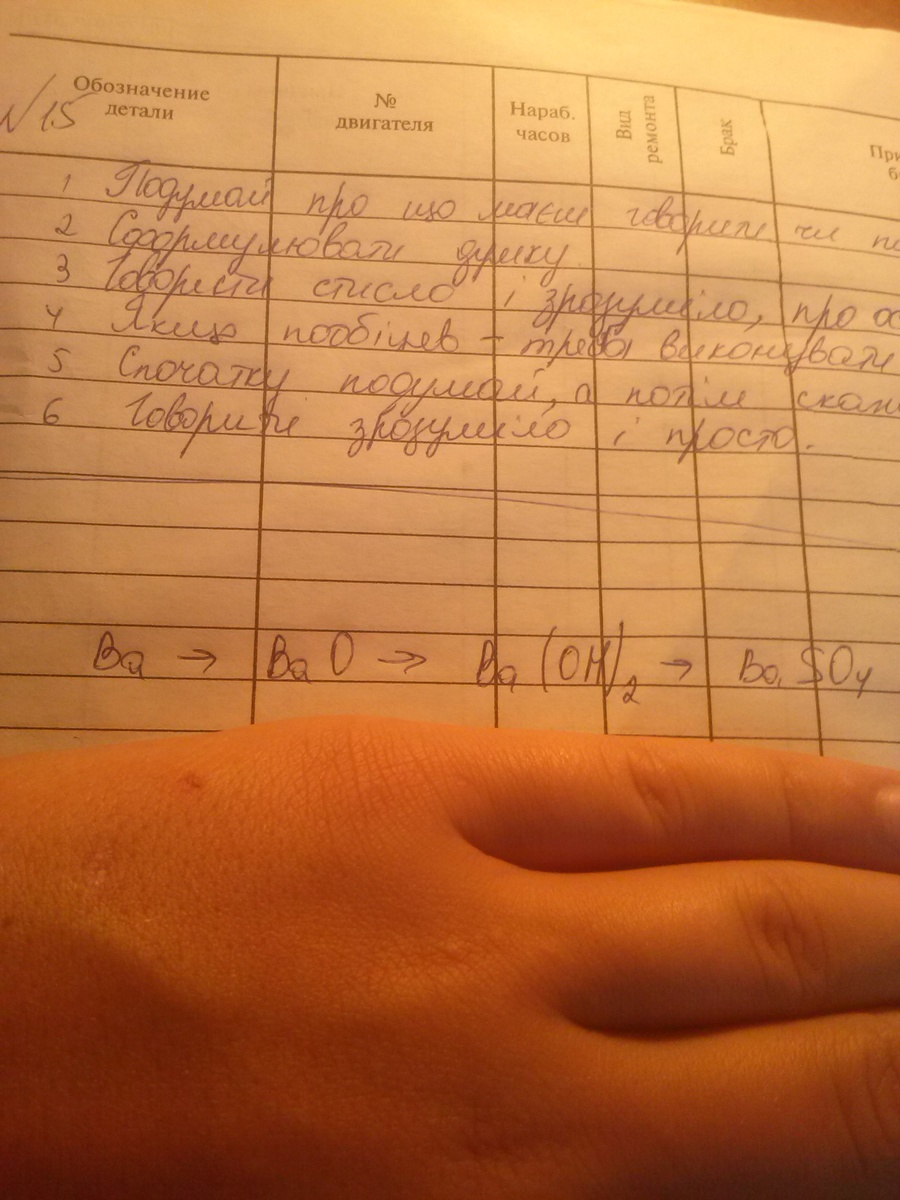 Обозначение детали № двигателя Нараб. часов Вид ремонта Брак При
N 15
1 Подумай про що маєш говорити чи
2 Сформулювати думку
3 Говорити стисло і зрозуміло, про ос
4 Якщо пообіцяв - треба виконувати
5 Спочатку подумай, а потім скаж
6 Говорити зрозуміло і просто.
Ba → BaO → Ba(OH)2 → BaSO4